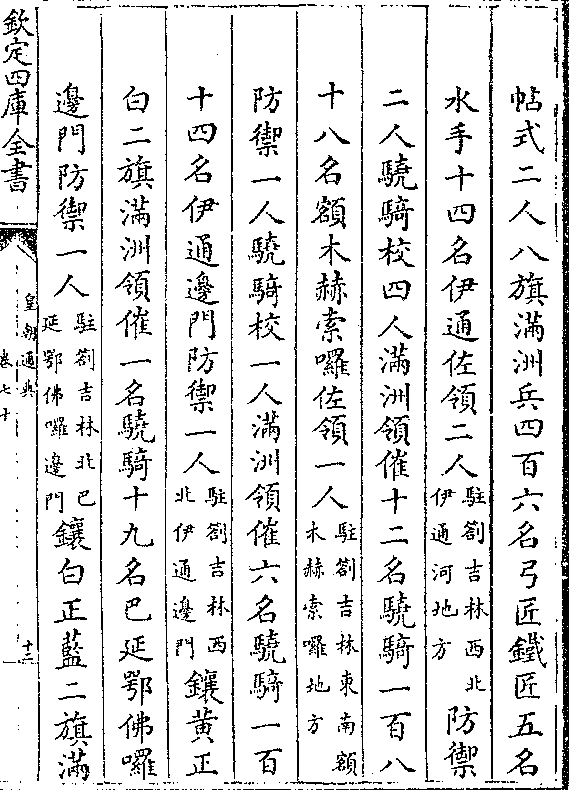 帖式二人八旗滿洲兵四百六名弓匠鐵匠五名
水手十四名伊通佐領二人駐劄吉林西北伊通河地方防禦
二人驍騎校四人滿洲領催十二名驍騎一百八
十八名額木赫索囉佐領一人駐劄吉林東南額木赫索囉地方
防禦一人驍騎校一人滿洲領催六名驍騎一百
十四名伊通邊門防禦一人駐劄吉林西北伊通邊門鑲黃正
白二旗滿洲領催一名驍騎十九名巴延鄂佛囉
邊門防禦一人駐劄吉林北巴延鄂佛囉邊門鑲白正藍二旗滿
欽定四庫全書
皇朝通典
卷七十
十二